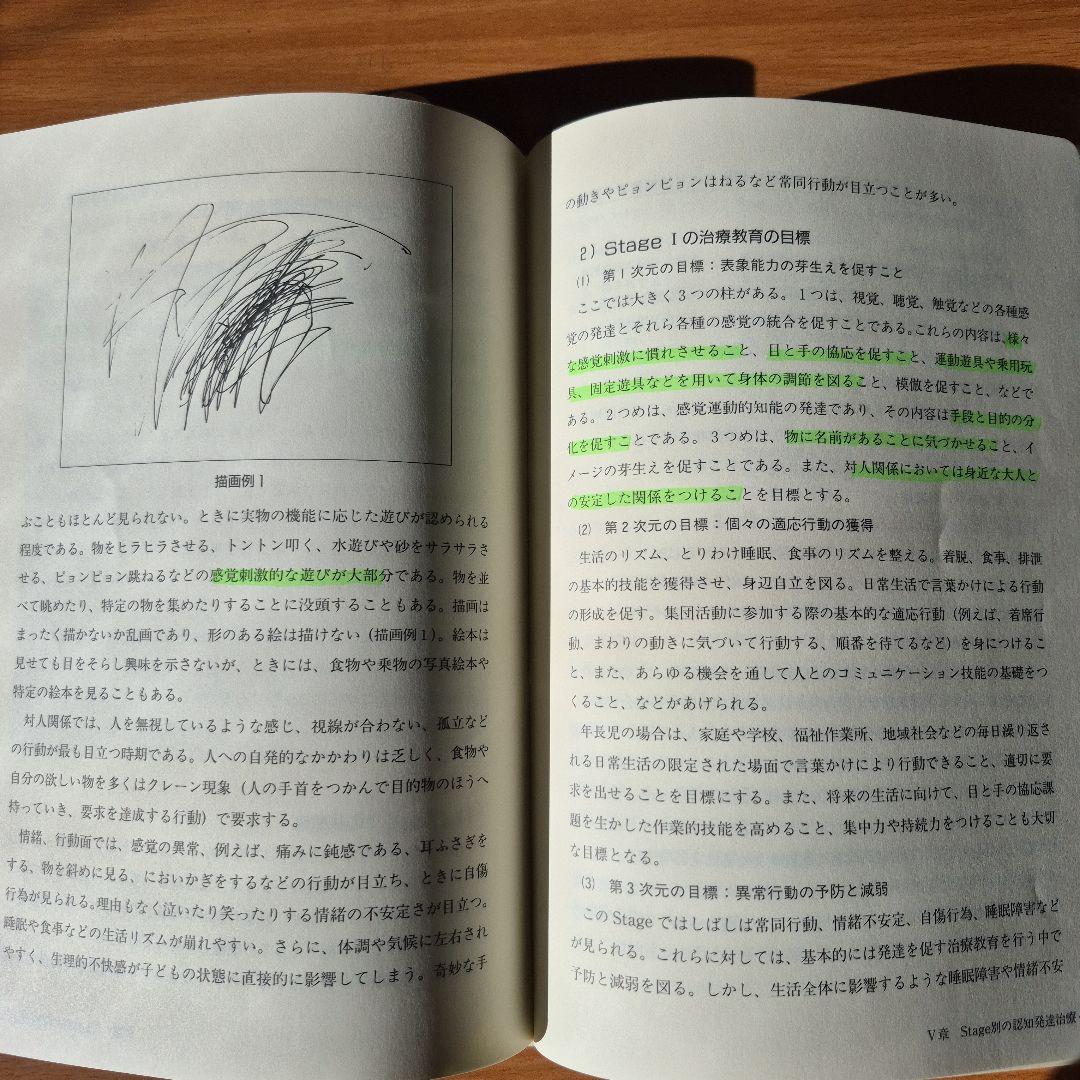 描画例1
ぶこともほとんど見られない。ときに実物の機能に応じた遊びが認められる
程度である。物をヒラヒラさせる、トントン叩く、水遊びや砂をサラサラさ
せる、ピョンピョン跳ねるなどの感覚刺激的な遊びが大部分である。物を並
べて眺めたり、特定の物を集めたりすることに没頭することもある。描画は
まったく描かないか乱画であり、形のある絵は描けない（描画例1）。絵本は
見せても目をそらし興味を示さないが、ときには、食物や乗物の写真絵本や
特定の絵本を見ることもある。
対人関係では、人を無視しているような感じ、視線が合わない、孤立など
の行動が最も目立つ時期である。人への自発的なかかわりは乏しく、食物や
自分の欲しい物を多くはクレーン現象（人の手首をつかんで目的物のほうへ
持っていき、要求を達成する行動）で要求する。
情緒、行動面では、感覚の異常、例えば、痛みに鈍感である、耳ふさぎを
する、物を斜めに見る、においかぎをするなどの行動が目立ち、ときに自傷
行為が見られる。理由もなく泣いたり笑ったりする情緒の不安定さが目立つ。
睡眠や食事などの生活リズムが崩れやすい。さらに、体調や気候に左右され
やすく、生理的不快感が子どもの状態に直接的に影響してしまう。奇妙な手
の動きやピョンピョンはねるなど常同行動が目立つことが多い。
2）Stage Ⅰの治療教育の目標
(1) 第1次元の目標：表象能力の芽生えを促すこと
ここでは大きく3つの柱がある。1つは、視覚、聴覚、触覚などの各種感
覚の発達とそれら各種の感覚の統合を促すことである。これらの内容は、様々
な感覚刺激に慣れさせること、目と手の協応を促すこと、運動遊具や乗用玩
具、固定遊具などを用いて身体の調節を図ること、模倣を促すこと、などで
ある。2つめは、感覚運動的知能の発達であり、その内容は手段と目的の分
化を促すことである。3つめは、物に名前があることに気づかせること、イ
メージの芽生えを促すことである。また、対人関係においては身近な大人と
の安定した関係をつけることを目標とする。
(2) 第2次元の目標：個々の適応行動の獲得
生活のリズム、とりわけ睡眠、食事のリズムを整える。着脱、食事、排泄
の基本的技能を獲得させ、身辺自立を図る。日常生活で言葉かけによる行動
の形成を促す。集団活動に参加する際の基本的な適応行動（例えば、着席行
動、まわりの動きに気づいて行動する、順番を待てるなど）を身につけるこ
と、また、あらゆる機会を通して人とのコミュニケーション技能の基礎をつ
くること、などがあげられる。
年長児の場合は、家庭や学校、福祉作業所、地域社会などの毎日繰り返さ
れる日常生活の限定された場面で言葉かけにより行動できること、適切に要
求を出せることを目標にする。また、将来の生活に向けて、目と手の協応課
題を生かした作業的技能を高めること、集中力や持続力をつけることも大切
な目標となる。
(3) 第3次元の目標：異常行動の予防と減弱
このStageではしばしば常同行動、情緒不安定、自傷行為、睡眠障害など
が見られる。これらに対しては、基本的には発達を促す治療教育を行う中で
予防と減弱を図る。しかし、生活全体に影響するような睡眠障害や情緒不安
Ⅴ章 Stage別の認知発達治療